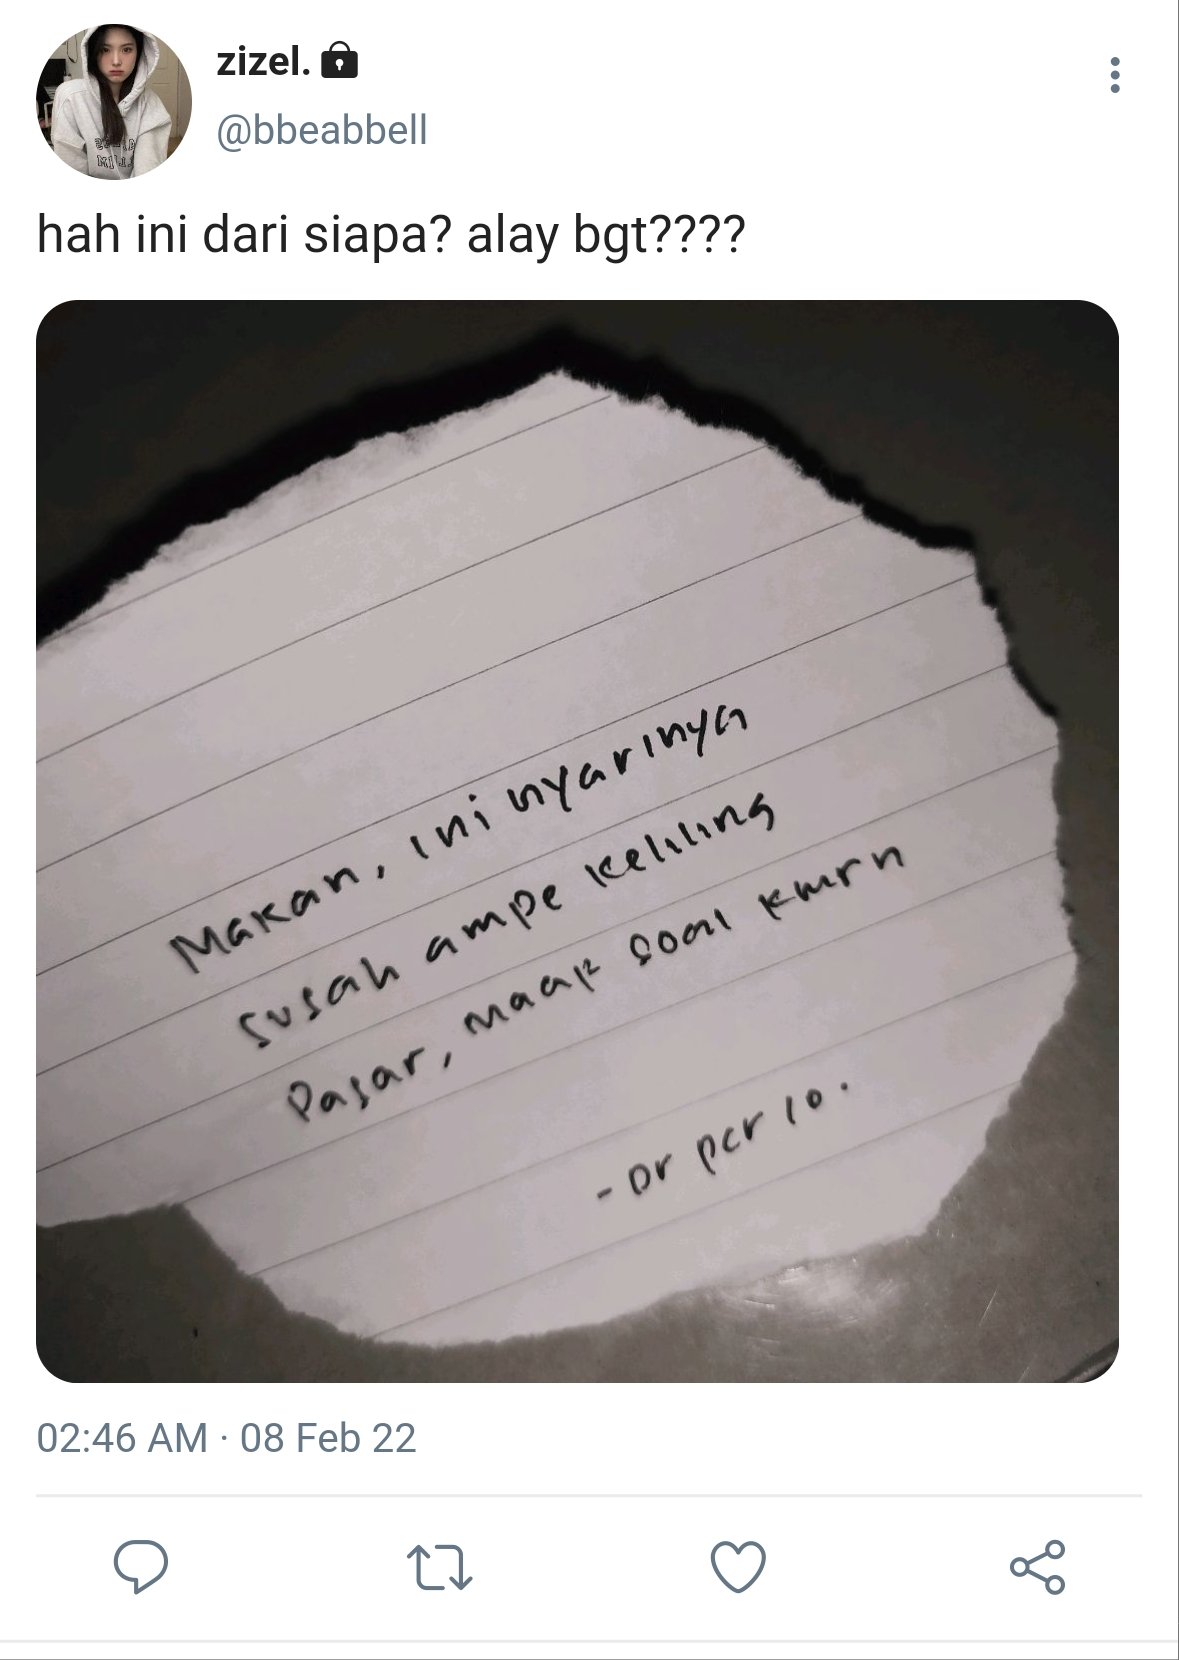 zizel.
@bbeabbell
hah ini dari siapa? alay bgt????
Makan, ini nyarinya
susah ampe keliling
Pasar, maap soal kmrn
- Dr pcr lo.
02:46 AM · 08 Feb 22